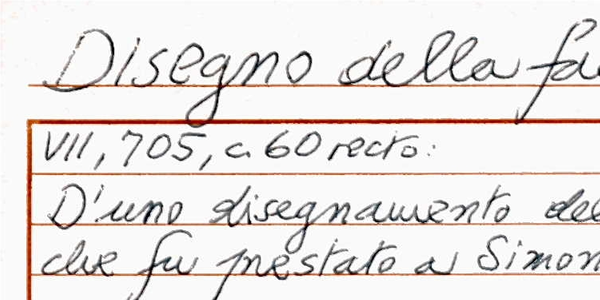 Disegno della fa
VII, 705, c. 60 recto:
D'uno disegnamento del
che fu prestato a Simon